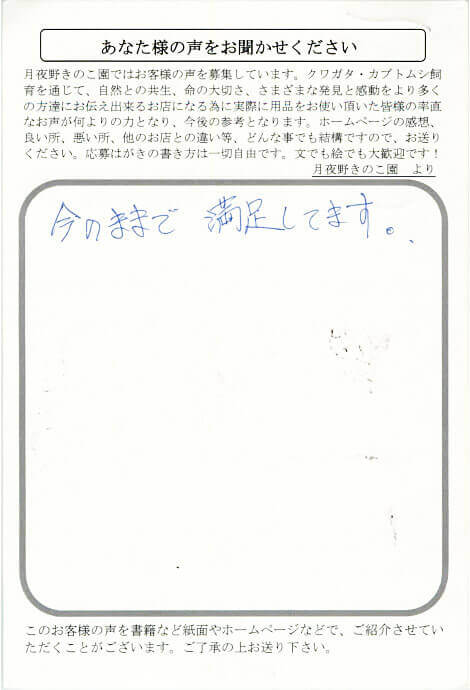 あなた様の声をお聞かせください
月夜野きのこ園ではお客様の声を募集しています。クワガタ・カブトムシ飼
育を通じて、自然との共生、命の大切さ、さまざまな発見と感動をより多く
の方達にお伝え出来るお店になる為に実際に用品をお使い頂いた皆様の率直
なお声が何よりの力となり、今後の参考となります。ホームページの感想、
良い所、悪い所、他のお店との違い等、どんな事でも結構ですので、お送り
ください。応募はがきの書き方は一切自由です。文でも絵でも大歓迎です！
月夜野きのこ園　より
今のままで 満足してます。
このお客様の声を書籍など紙面やホームページなどで、ご紹介させてい
ただくことがございます。ご了承の上お送り下さい。